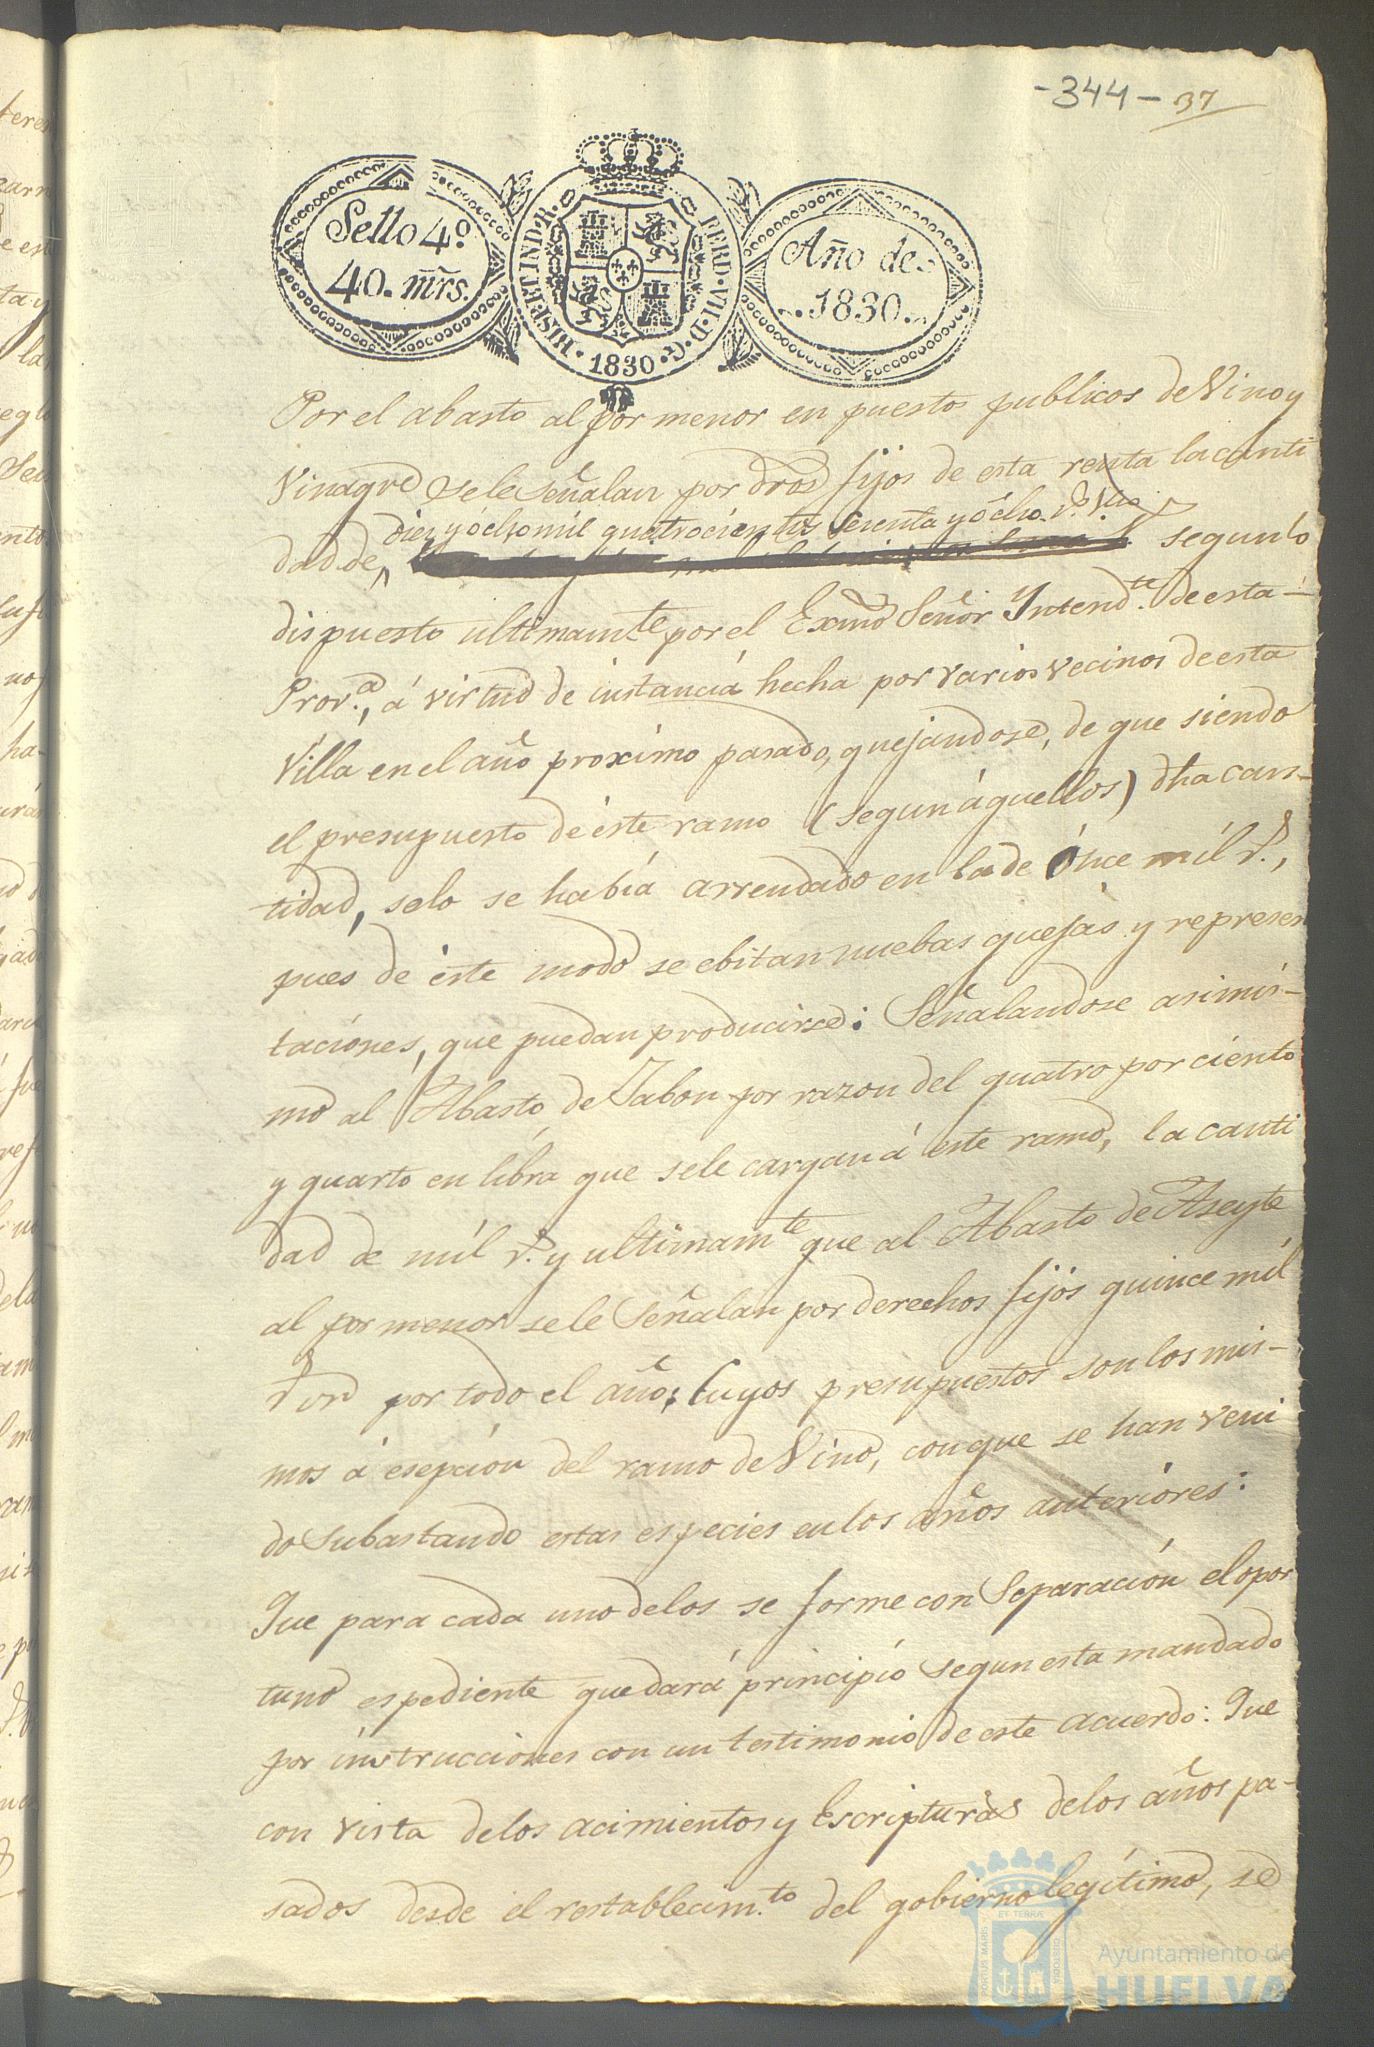 -344- 37
Sello 4º
40. mrs.
HISP. ET IND. R. FERD. VII. D. G. 1830
Año de
1830.
Por el abasto al por menor en puestos publicos de Vino y
Vinagre se le señalan por dros fijos de esta renta la canti
diez y ócho mil quatrocientos setenta y ócho r.s V.on
dad de, segun lo
dispuesto ultimam.te por el Exmo Señor Yntend.te de esta
Prov.a, á virtud de instancia hecha por varios vecinos de esta
Villa en el año proximo pasado, quejandose, de que siendo
el presupuesto de éste ramo (segun áquellos) dha can-
tidad, solo se había arrendado en la de ónce míl r.s,
pues de éste modo se ebitan nuebas quejas y represen
taciónes, que puedan producirse: Señalandose asimis-
mo al Abasto de Jabon por razon del quatro por ciento
y quarto en libra que se le cargan á este ramo, la canti
dad de mil r.s y ultimam.te que al Abasto de Aseyte
al por menor se le señalan por derechos fijos quince míl
r.s von por todo el año; Cuyos presupuestos son los mis-
mos á esepción del ramo de Vino, con que se han veni
do subastando estas especies en los años anterióres:
Que para cada uno de los se forme con separación el opor
tuno espediente que dará principio segun esta mandado
por instrucciones con un testimonio de este acuerdo: Que
con vista de los acimientos y Escripturas de los años pa-
sados desde el restablecim.to del gobierno legítimo, se
PORTUS MARIS ET TERRÆ CUSTODIA
Ayuntamiento de
HUELVA